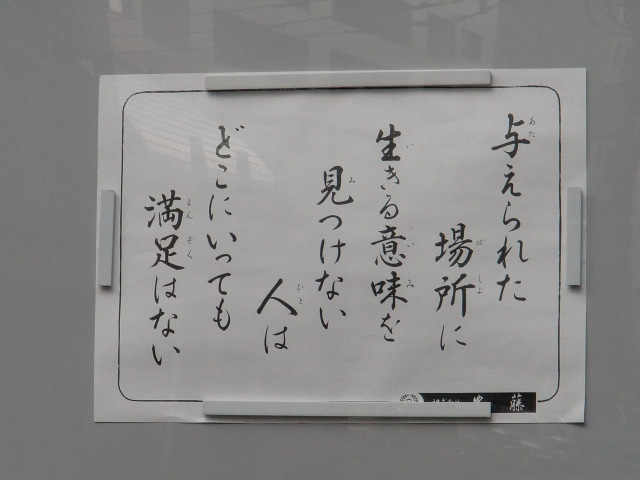 与えられた
場所に
生きる意味を
見つけない
人は
どこにいっても
満足はない
藤